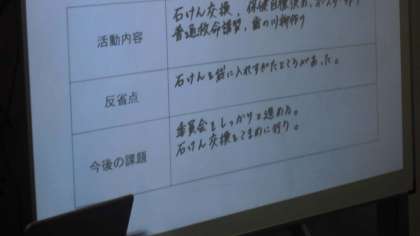 活動内容
石けん交換、保健目標決め、ポスター作り
普通救命講習、歯の川柳作り
反省点
石けんを袋に入れすぎたところがあった。
今後の課題
委員会をしっかりと進めた。
石けん交換をこまめに行う。